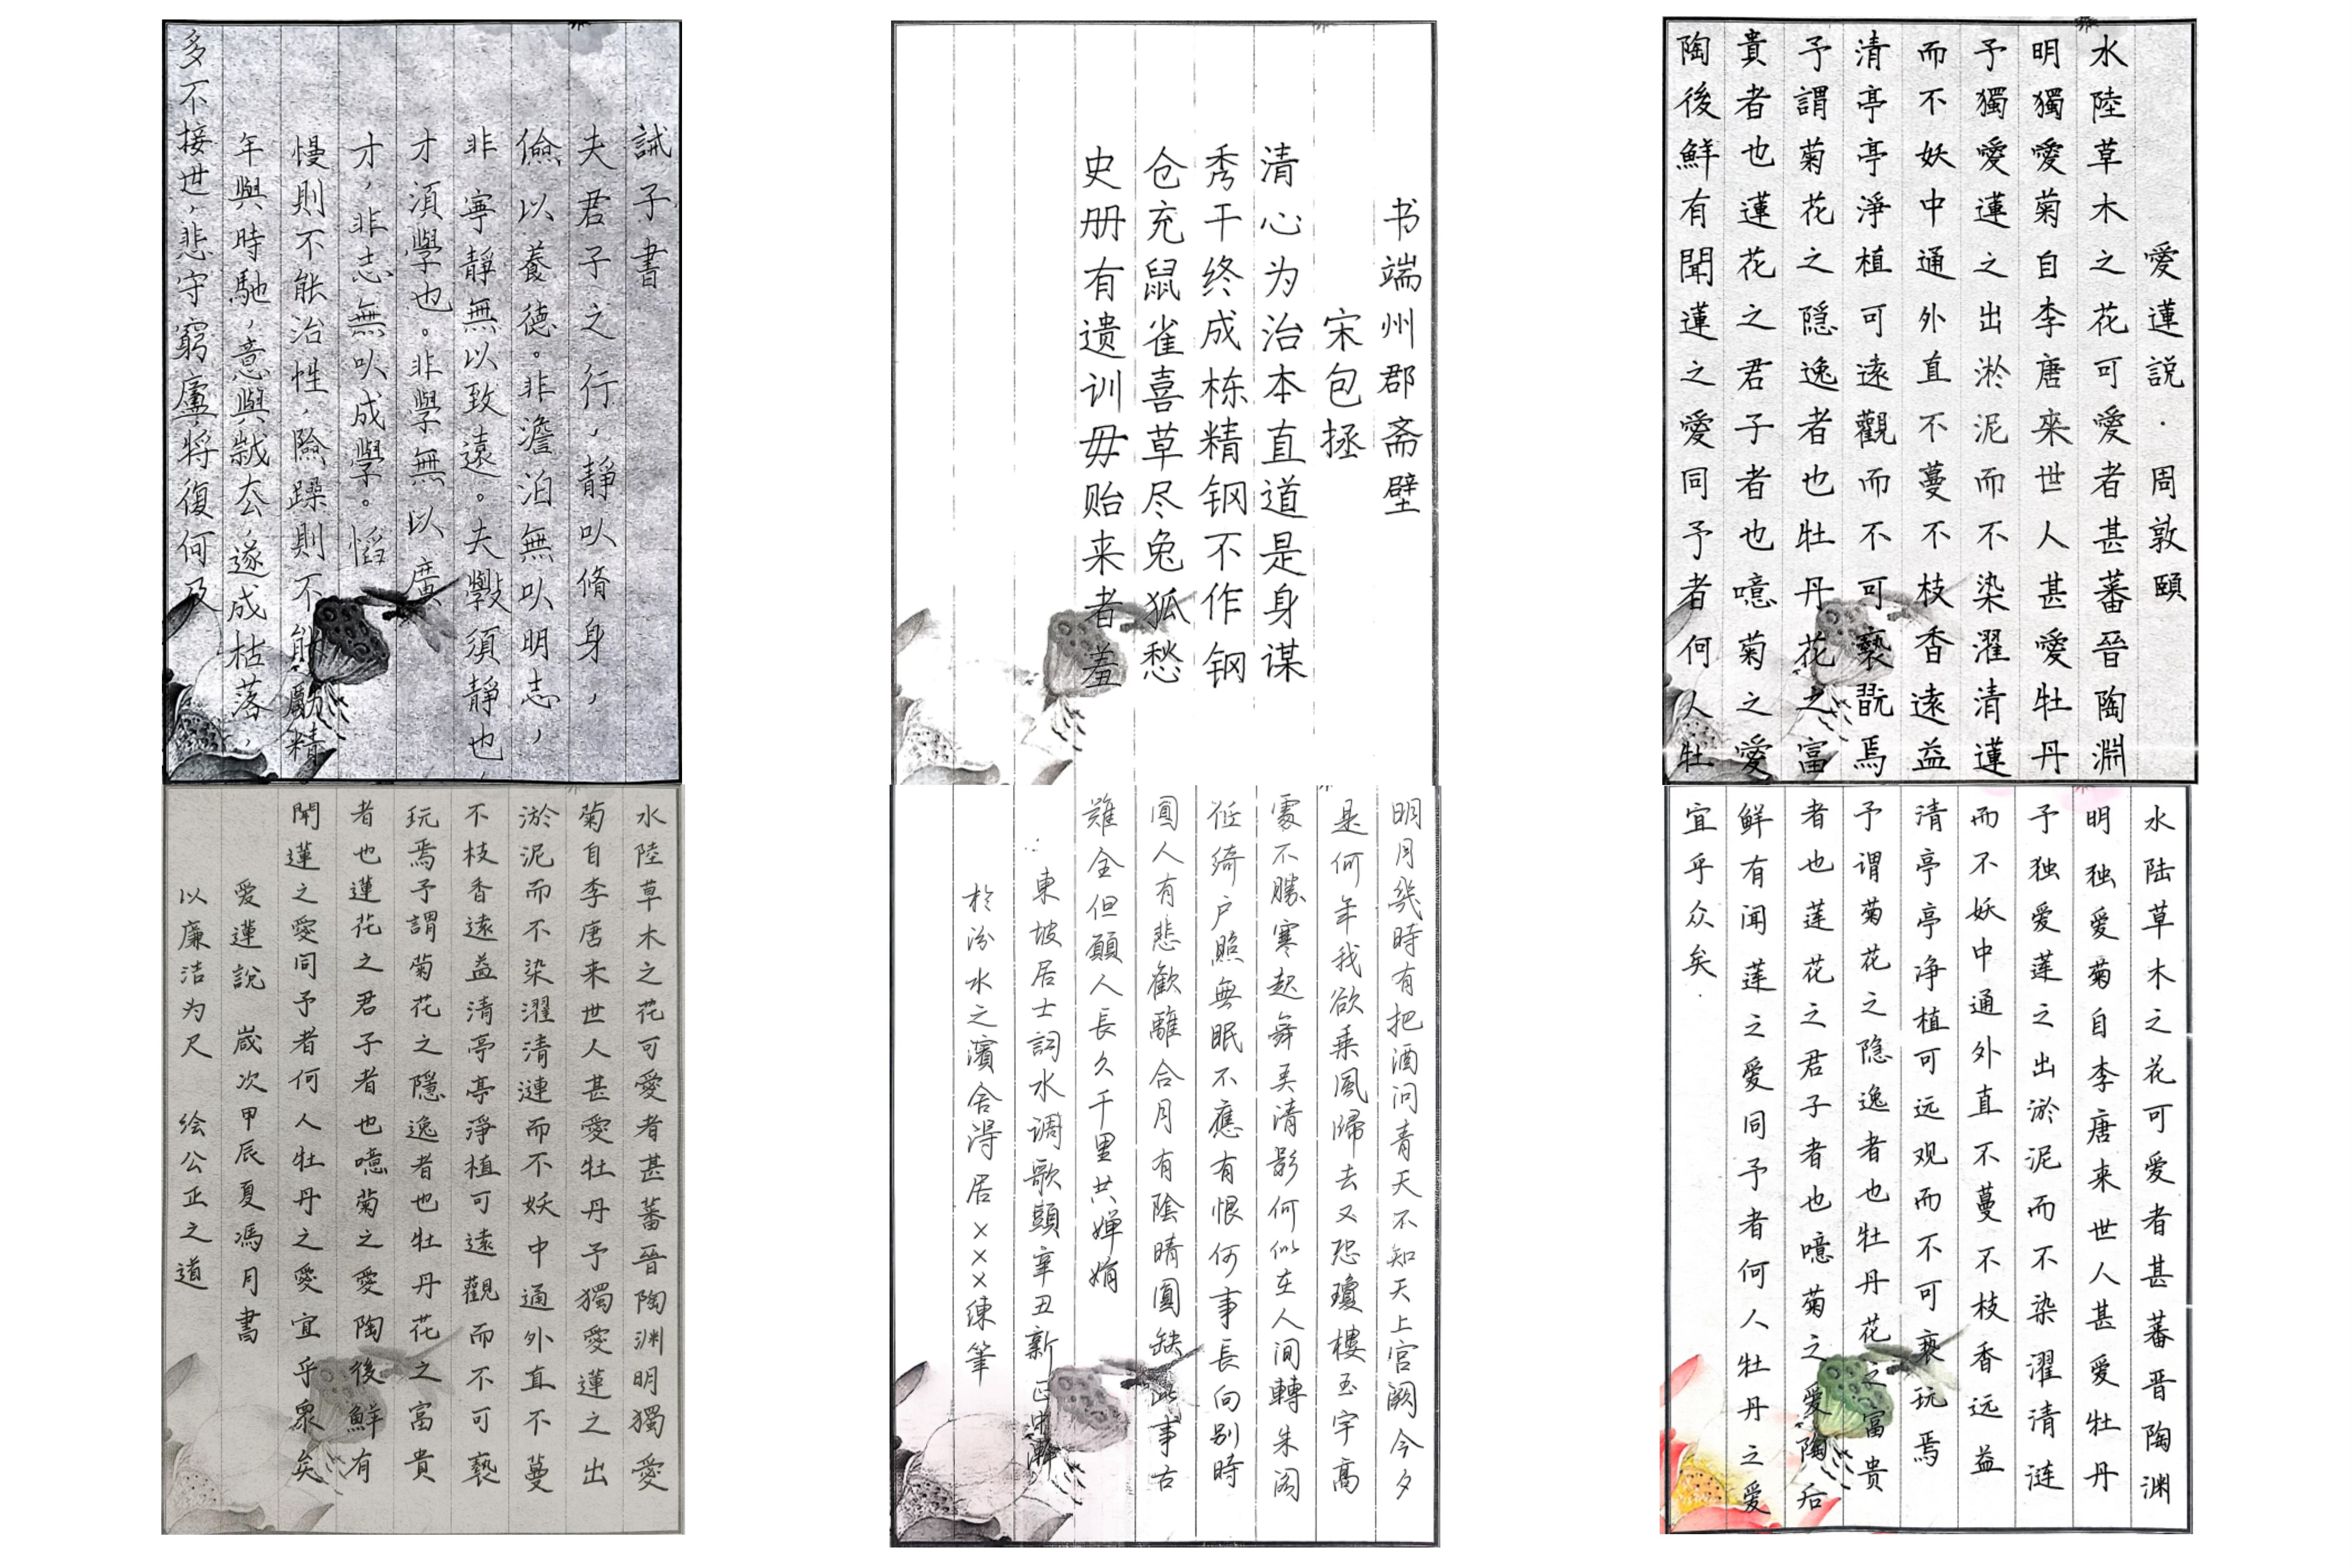 誡子書
夫君子之行，靜以脩身，
儉以養德。非澹泊無以明志，
非寧靜無以致遠。夫學須靜也，
才須學也。非學無以廣
才，非志無以成學。慆
慢則不能治性，險躁則不能勵精
年與時馳，意與歲去，遂成枯落，
多不接世，悲守窮廬，將復何及
书端州郡斋壁
宋包拯
清心为治本直道是身谋
秀干终成栋精钢不作钢
仓充鼠雀喜草尽兔狐愁
史册有遗训毋贻来者羞
愛蓮説·周敦頤
水陸草木之花可愛者甚蕃晉陶淵
明獨愛菊自李唐來世人甚愛牡丹
予獨愛蓮之出淤泥而不染濯清蓮
而不妖中通外直不蔓不枝香遠益
清亭亭淨植可遠觀而不可褻翫焉
予謂菊花之隐逸者也牡丹花之富
貴者也蓮花之君子者也噫菊之愛
陶後鮮有聞蓮之愛同予者何人牡
水陸草木之花可愛者甚蕃晉陶渊明獨愛
菊自李唐来世人甚愛牡丹予獨愛蓮之出
淤泥而不染濯清漣而不妖中通外直不蔓
不枝香遠益清亭亭淨植可遠觀而不可褻
玩焉予謂菊花之隱逸者也牡丹花之富貴
者也蓮花之君子者也噫菊之愛陶後鮮有
聞蓮之愛同予者何人牡丹之愛宜乎眾矣
愛蓮說 歲次甲辰夏馮月書
以廉洁为尺 绘公正之道
明月幾時有把酒问青天不知天上宫阙今夕
是何年我欲乘風歸去又恐瓊樓玉宇高
處不勝寒起舞弄清影何似在人间轉朱阁
低绮户照無眠不應有恨何事長向别時
圓人有悲歡離合月有陰晴圓缺此事古
難全但願人長久千里共嬋娟
東坡居士詞水调歌頭辛丑新正
於汾水之濱舍得居×××练筆
水陆草木之花可爱者甚蕃晋陶渊
明独爱菊自李唐来世人甚爱牡丹
予独爱莲之出淤泥而不染濯清涟
而不妖中通外直不蔓不枝香远益
清亭亭净植可远观而不可亵玩焉
予谓菊花之隐逸者也牡丹花之富贵
者也莲花之君子者也噫菊之爱陶后
鲜有闻莲之爱同予者何人牡丹之爱
宜乎众矣.